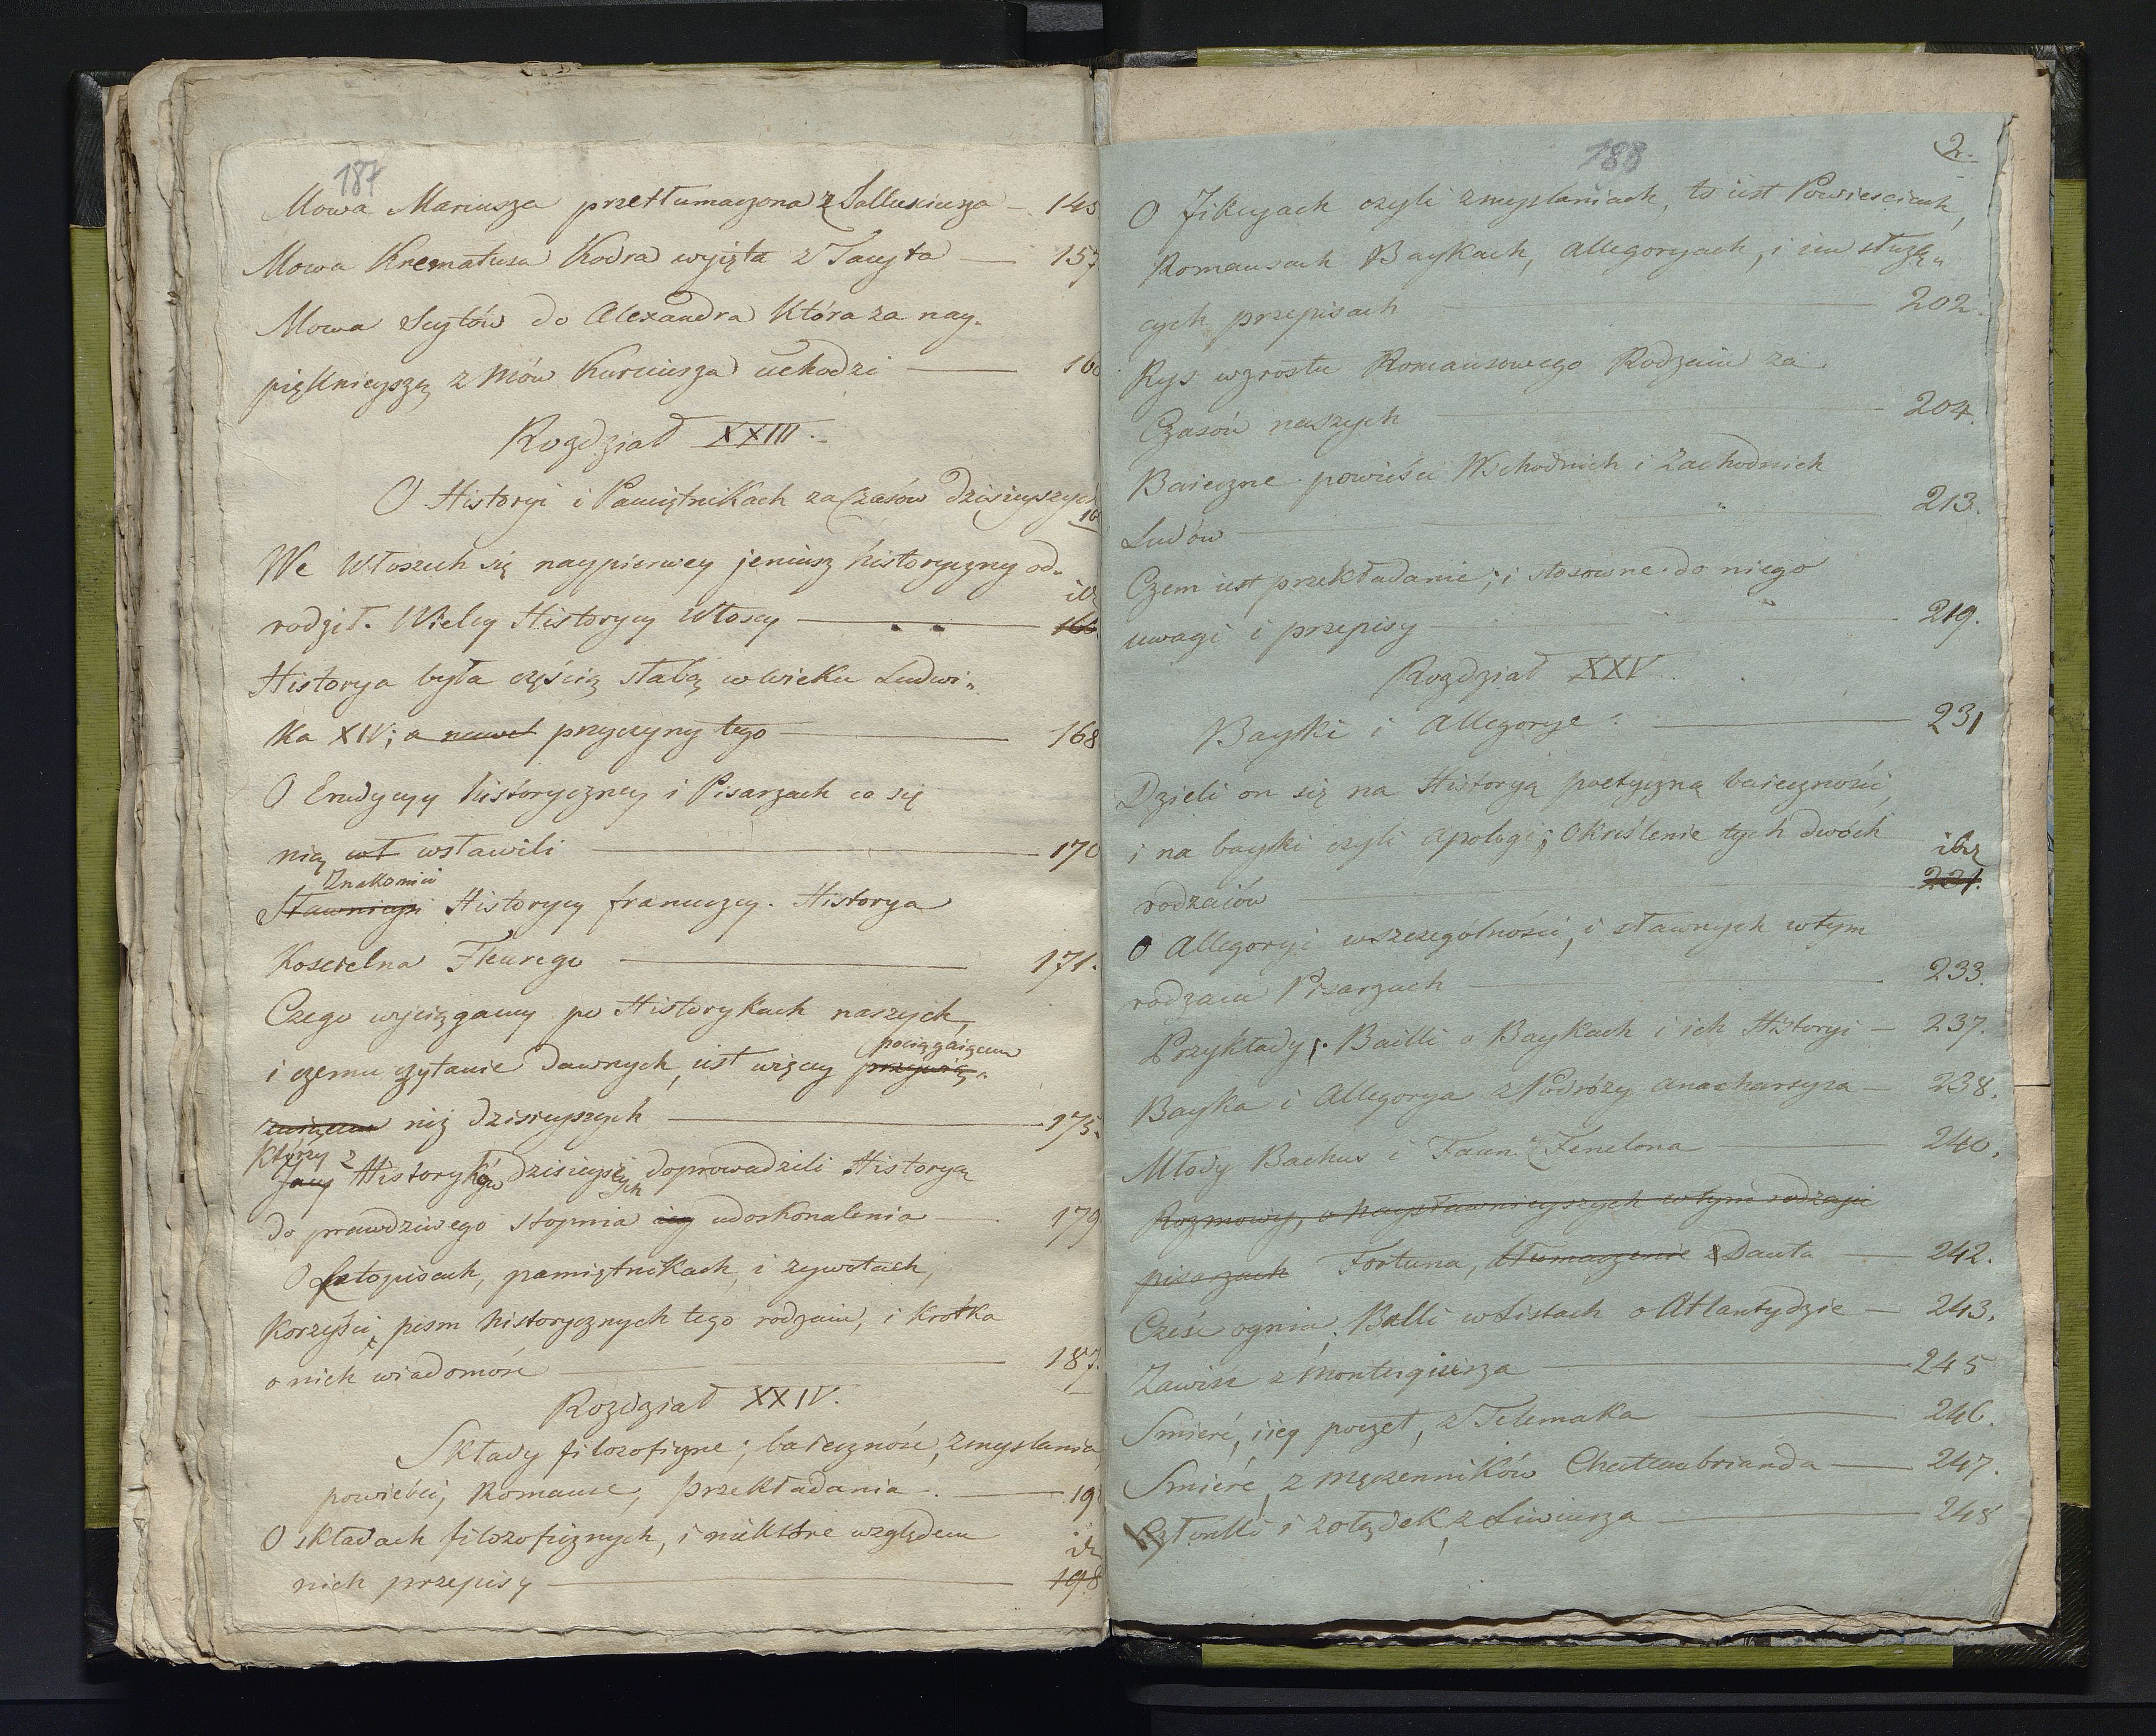 187
Mowa Mariusza przetłumaczona z Sallusiusza — 145
Mowa Krematusa Kodra wyięta z Tacyta — 157
Mowa Scytów do Alexandra Która za nay-
pięknieyszą z mów Kurciusza uchodzi — 160
Rozdział XXIII.
O Historyi i Pamiętnikach za Czasów dzisieyszych
16
We Włoszech się naypierwey jeniusz historyczny od-
rodził. Wielcy Historycy Włoscy — 166
Historya była częścią słabą w wieku Ludwi-
ka XIV; a nawet przyczyny tego — 168
O Erudycyy historyczney i Pisarzach co się
nią wł wsławili — 170
Znakomici
Sławnieysi Historycy francuzcy. Historya
Koscielna Fleurego — 171.
Czego wyciągamy po Historykach naszych,
pociągaiącem
i czemu czytanie dawnych, iest więcey przywią-
zuiącem niż dzisieyszych — 175.
Którzy z
Jacy Historyków dzisieyszych doprowadzili Historyą
do prawdziwego stopnia iey udoskonalenia — 179
O Latopisach, pamiętnikach, i zywotach,
Korzyści, pism historycznych tego rodzaiu, i krótka
o nich wiadomość — 187.
Rozdział XXIV.
Składy filozoficzne; baieczność, zmyslania
powieści, Romanse, przekładania. — 19
O składach filozoficznych, i niektóre względem
nich przepisy — 198
188
2.
O fikcyach czyli zmyslaniach, to iest Powiesciach,
Romansach Baykach, allegoryach, i im służą-
cych przepisach — 202.
Rys wzrostu Romansowego Rodzaiu za
Czasów naszych — 204.
Baieczne powieści Wschodnich i Zachodnich
Ludów — 213.
Czem iest przekładanie; i stosowne do niego
uwagi i przepisy — 219.
Rozdział XXV.
Bayki i Allegorye — 231
Dzieli on się na Historyą poetyczną baieczności,
i na bayki czyli apologi; Okréślenie tych dwóch
ibż
rodzaiów — 231.
O Allegoryi wszczególności, i sławnych wtym
rodzaiu Pisarzach — 233.
Przykłady. Bailli o Baykach i ich Historyi — 237.
Bayka i Allegorya z Podróży anacharsysa — 238.
Młody Bachus i Faun z Fenelona — 240.
Rozmowy, o naysławnieyszych wtym rodzaju
pisarzach Fortuna, tłumaczenie z Danta — 242.
Cześć ognia. Balli w Listach o Atlantydzie — 243.
Zawisc z Monteigiusza — 245
Smierć, i iey poczet, z Telemaka — 246.
Smierć, z Męczenników Chateaubrianda — 247.
Członki i zołądek, z Liwiusza — 248